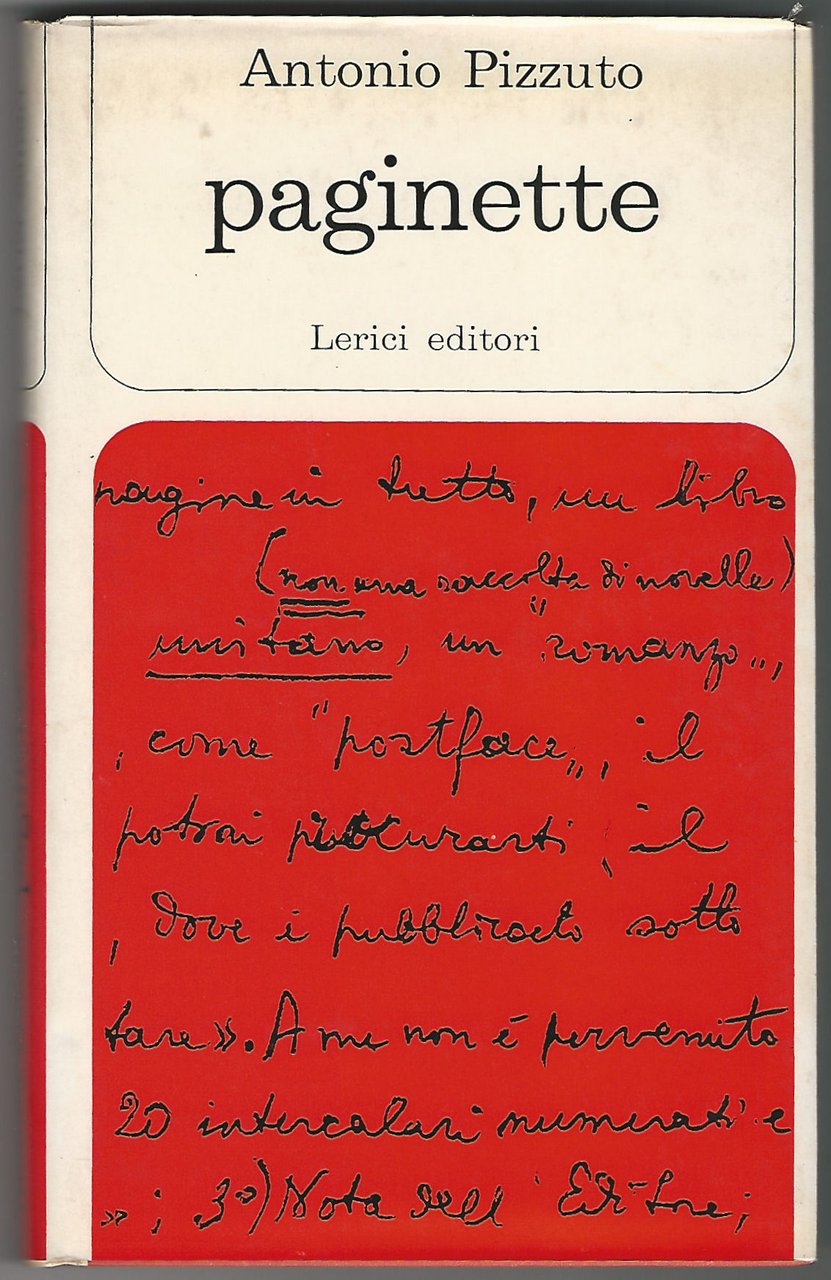 Antonio Pizzuto
paginette
Lerici editori
pagine in tutto, un libro
(non una raccolta di novelle)
unitario, un "romanzo„,
, come "postface„, il
potrai procurarti, il
, dove è pubblicato sotto
tare». A me non è pervenuto
20 intercalari numerati e
»; 3º) Nota dell'Editore;